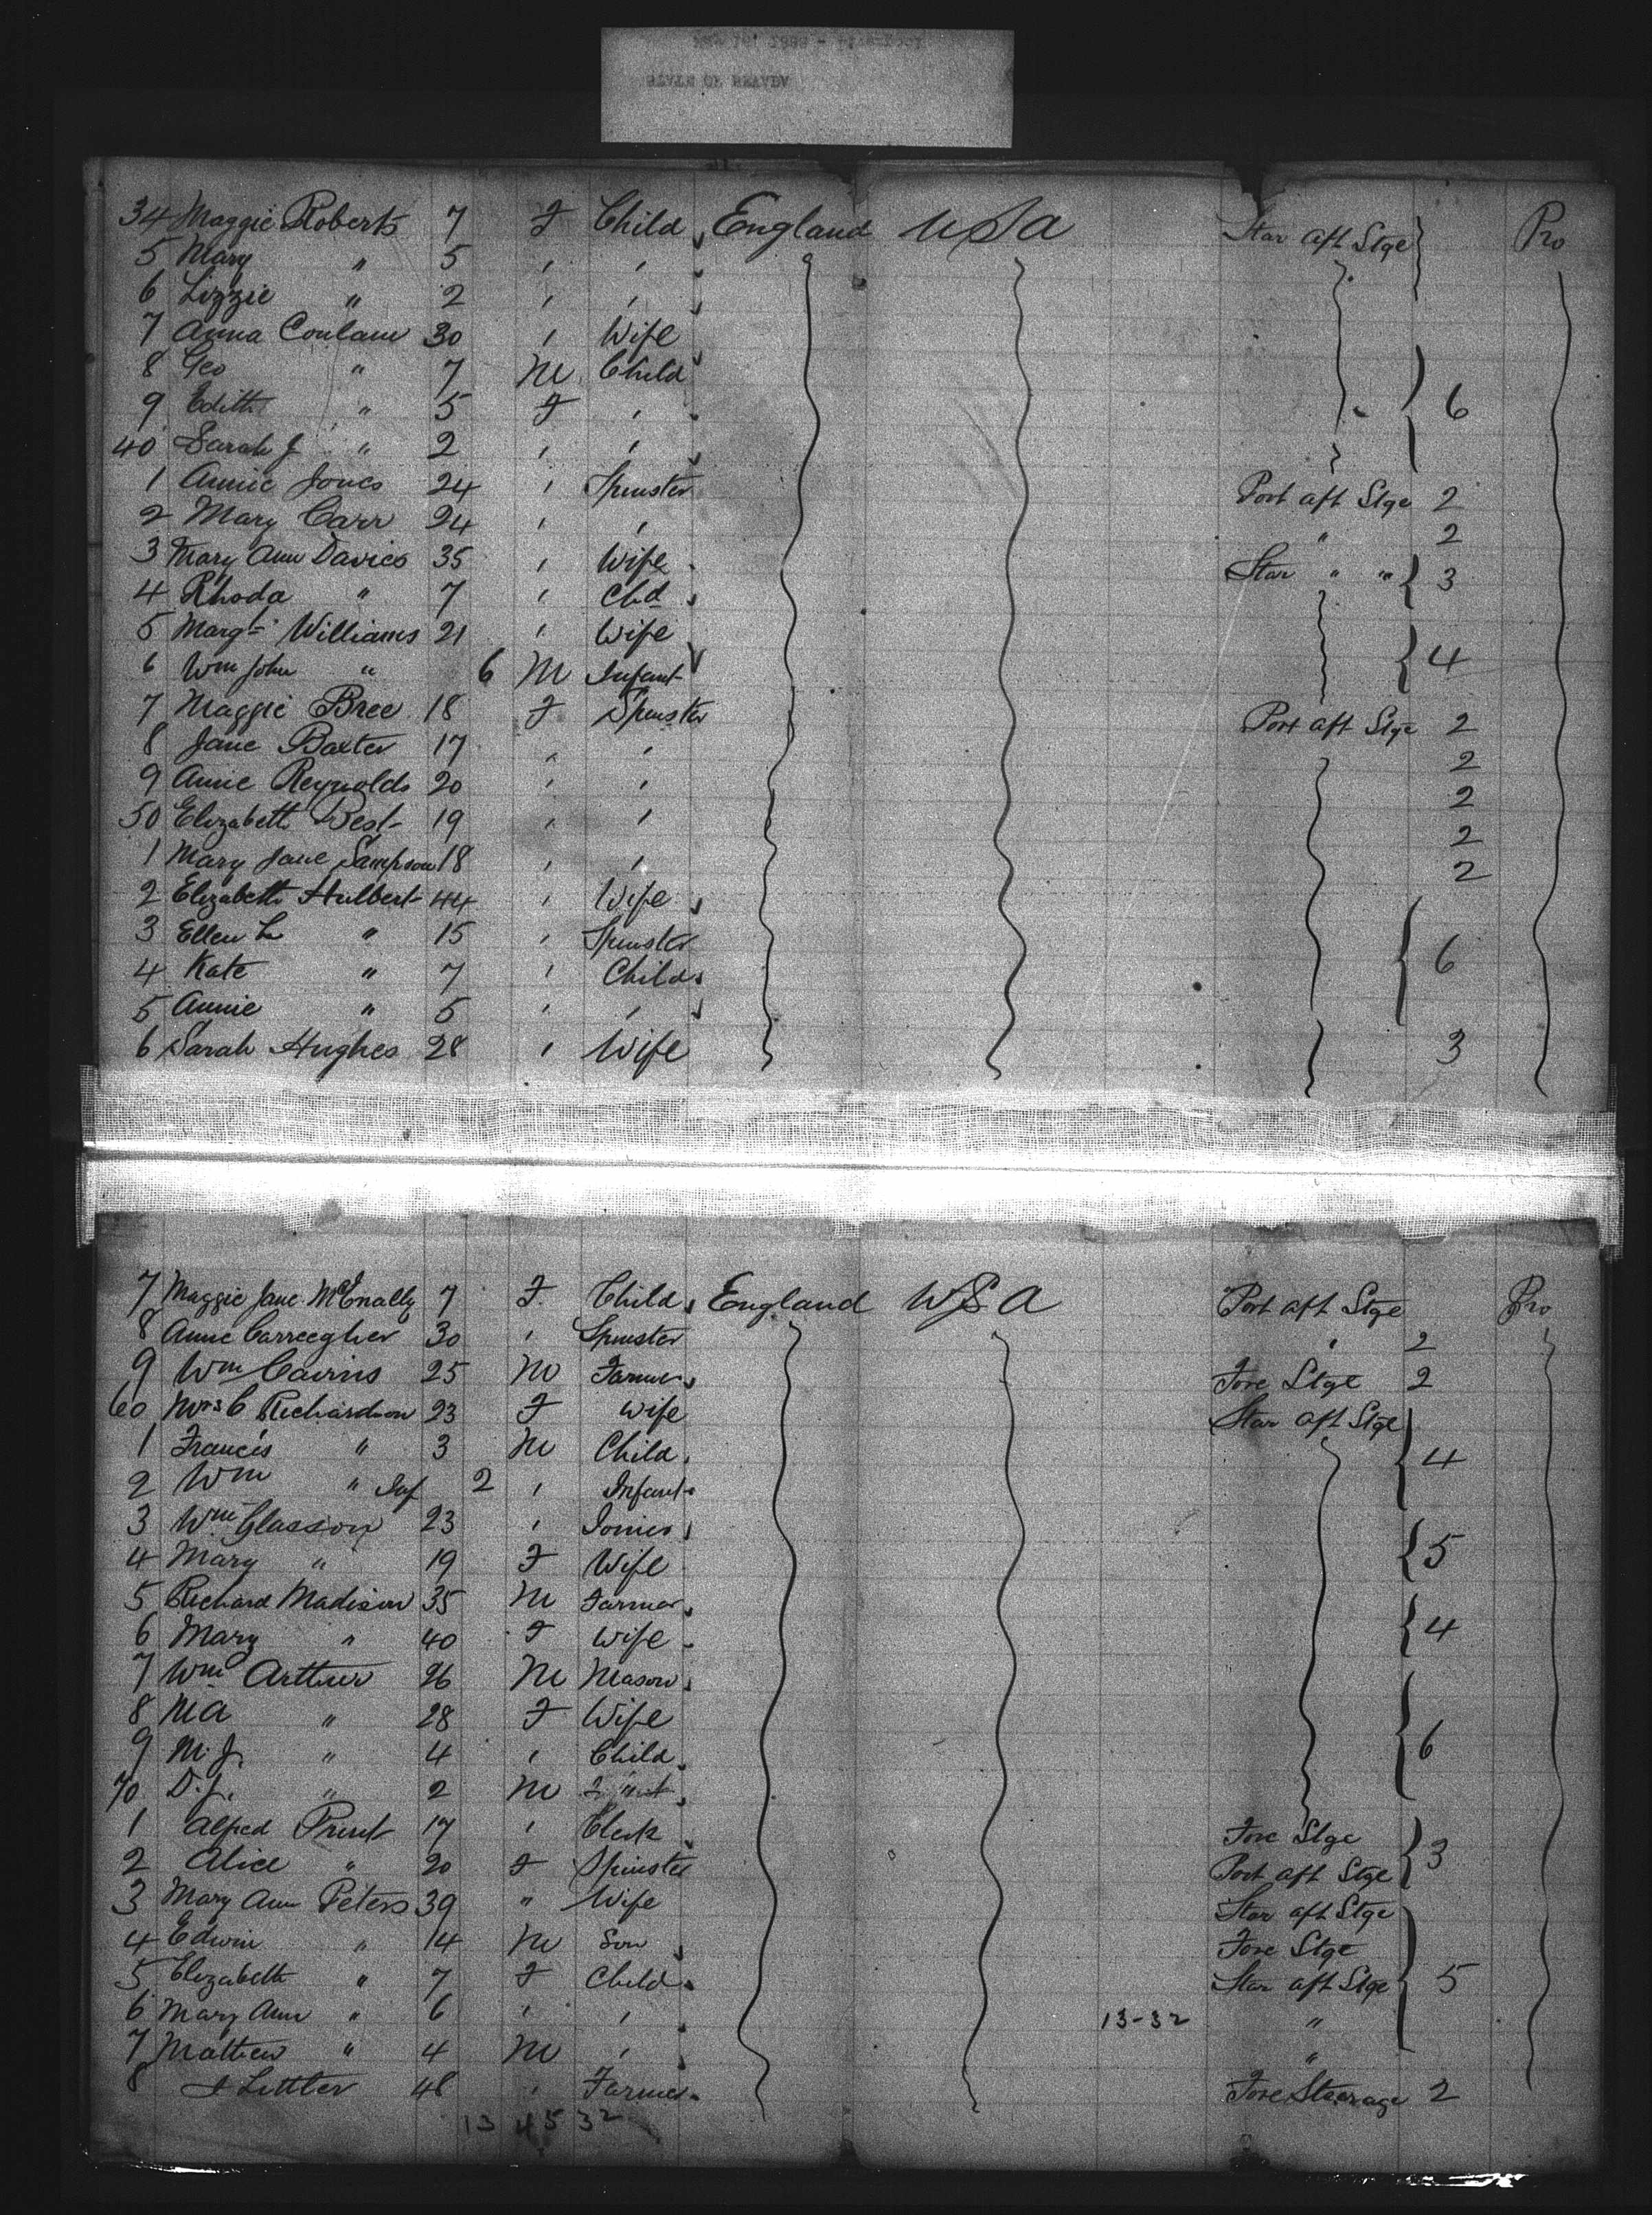 34 Maggie Roberts 7 F Child England USA Star aft Stge Pro
5 Mary " 5 " "
6 Lizzie " 2 " "
7 Anna Coulam 30 " Wife
8 Geo " 7 M Child
9 Edith " 5 F " 6
40 Sarah J " 2 " "
1 Annie Jones 24 " Spinster Port aft Stge 2
2 Mary Carr 24 " " " 2
3 Mary Ann Davies 35 " Wife Star " " 3
4 Rhoda " 7 " Chd
5 Margt Williams 21 " Wife
6 Wm John " 6 M Infant 4
7 Maggie Bree 18 F Spinster Port aft Stge 2
8 Jane Baxter 17 " " 2
9 Anne Reynolds 20 " " 2
50 Elizabeth 19 " " 2
1 Mary Jane Sampson 18 " " 2
2 Elizabeth Hulbert 44 " Wife
3 Ellen L " 15 " Spinster
4 Kate " 7 " Child 6
5 Annie " 5 " "
6 Sarah Hughes 28 " Wife 3
7 Maggie Jane McEnally 7 F. Child England USA Port aft Stge Pro
8 Anne 30 " Spinster " 2
9 Wm Cairns 25 M Farmer Fore Stge 2
60 Mrs C Richardson 23 F Wife Star aft Stge
1 Francis " 3 M Child 4
2 Wm " Inf 2 " Infant
3 Wm Glasson 23 " 5
4 Mary " 19 F Wife
5 Richard Madison 35 M Farmer
6 Mary " 40 F Wife 4
7 Wm Arthur 26 M Mason
8 M A " 28 F Wife
9 M. J. " 4 " Child 6
70 D. J. " 2 M
1 Alfred 17 " Clerk Fore Stge 3
2 Alice " 20 F Spinster Port aft Stge
3 Mary Ann Peters 39 " Wife Star aft Stge
4 Edwin " 14 M Son Fore Stge
5 Elizabeth " 7 F Child Star aft Stge 5
6 Mary Ann " 6 " " 13-32 "
7 Mathew " 4 M " "
8 J Littler 48 " Farmer Fore Steerage 2
13 45 32